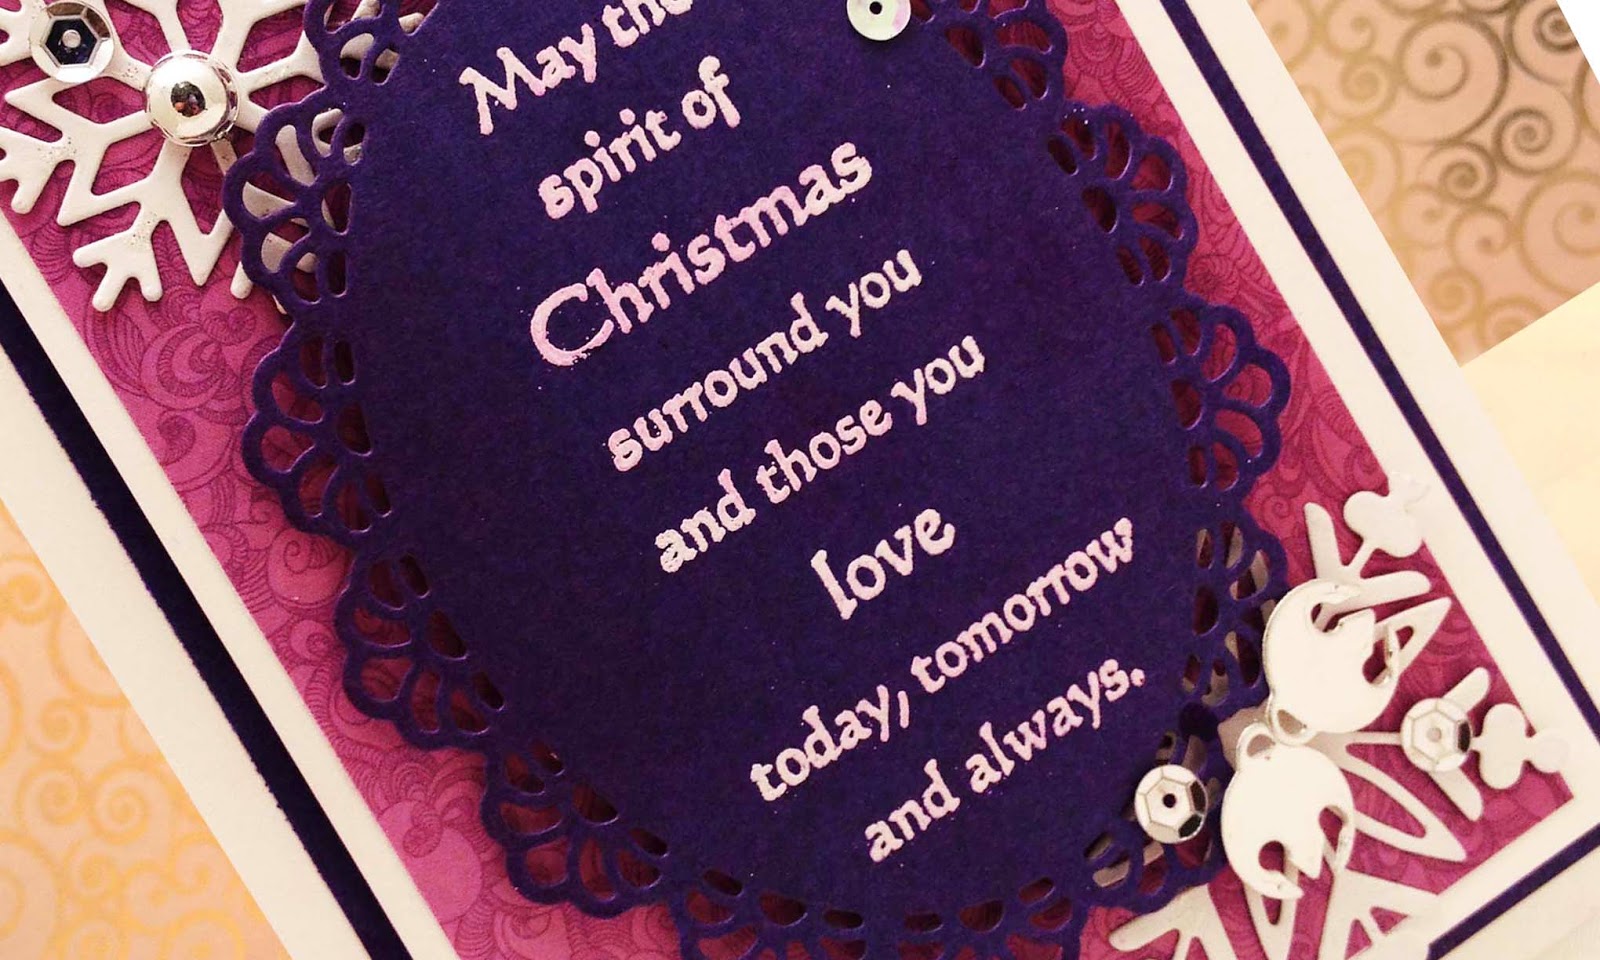 May the
spirit of
Christmas
surround you
and those you
love
today, tomorrow
and always.